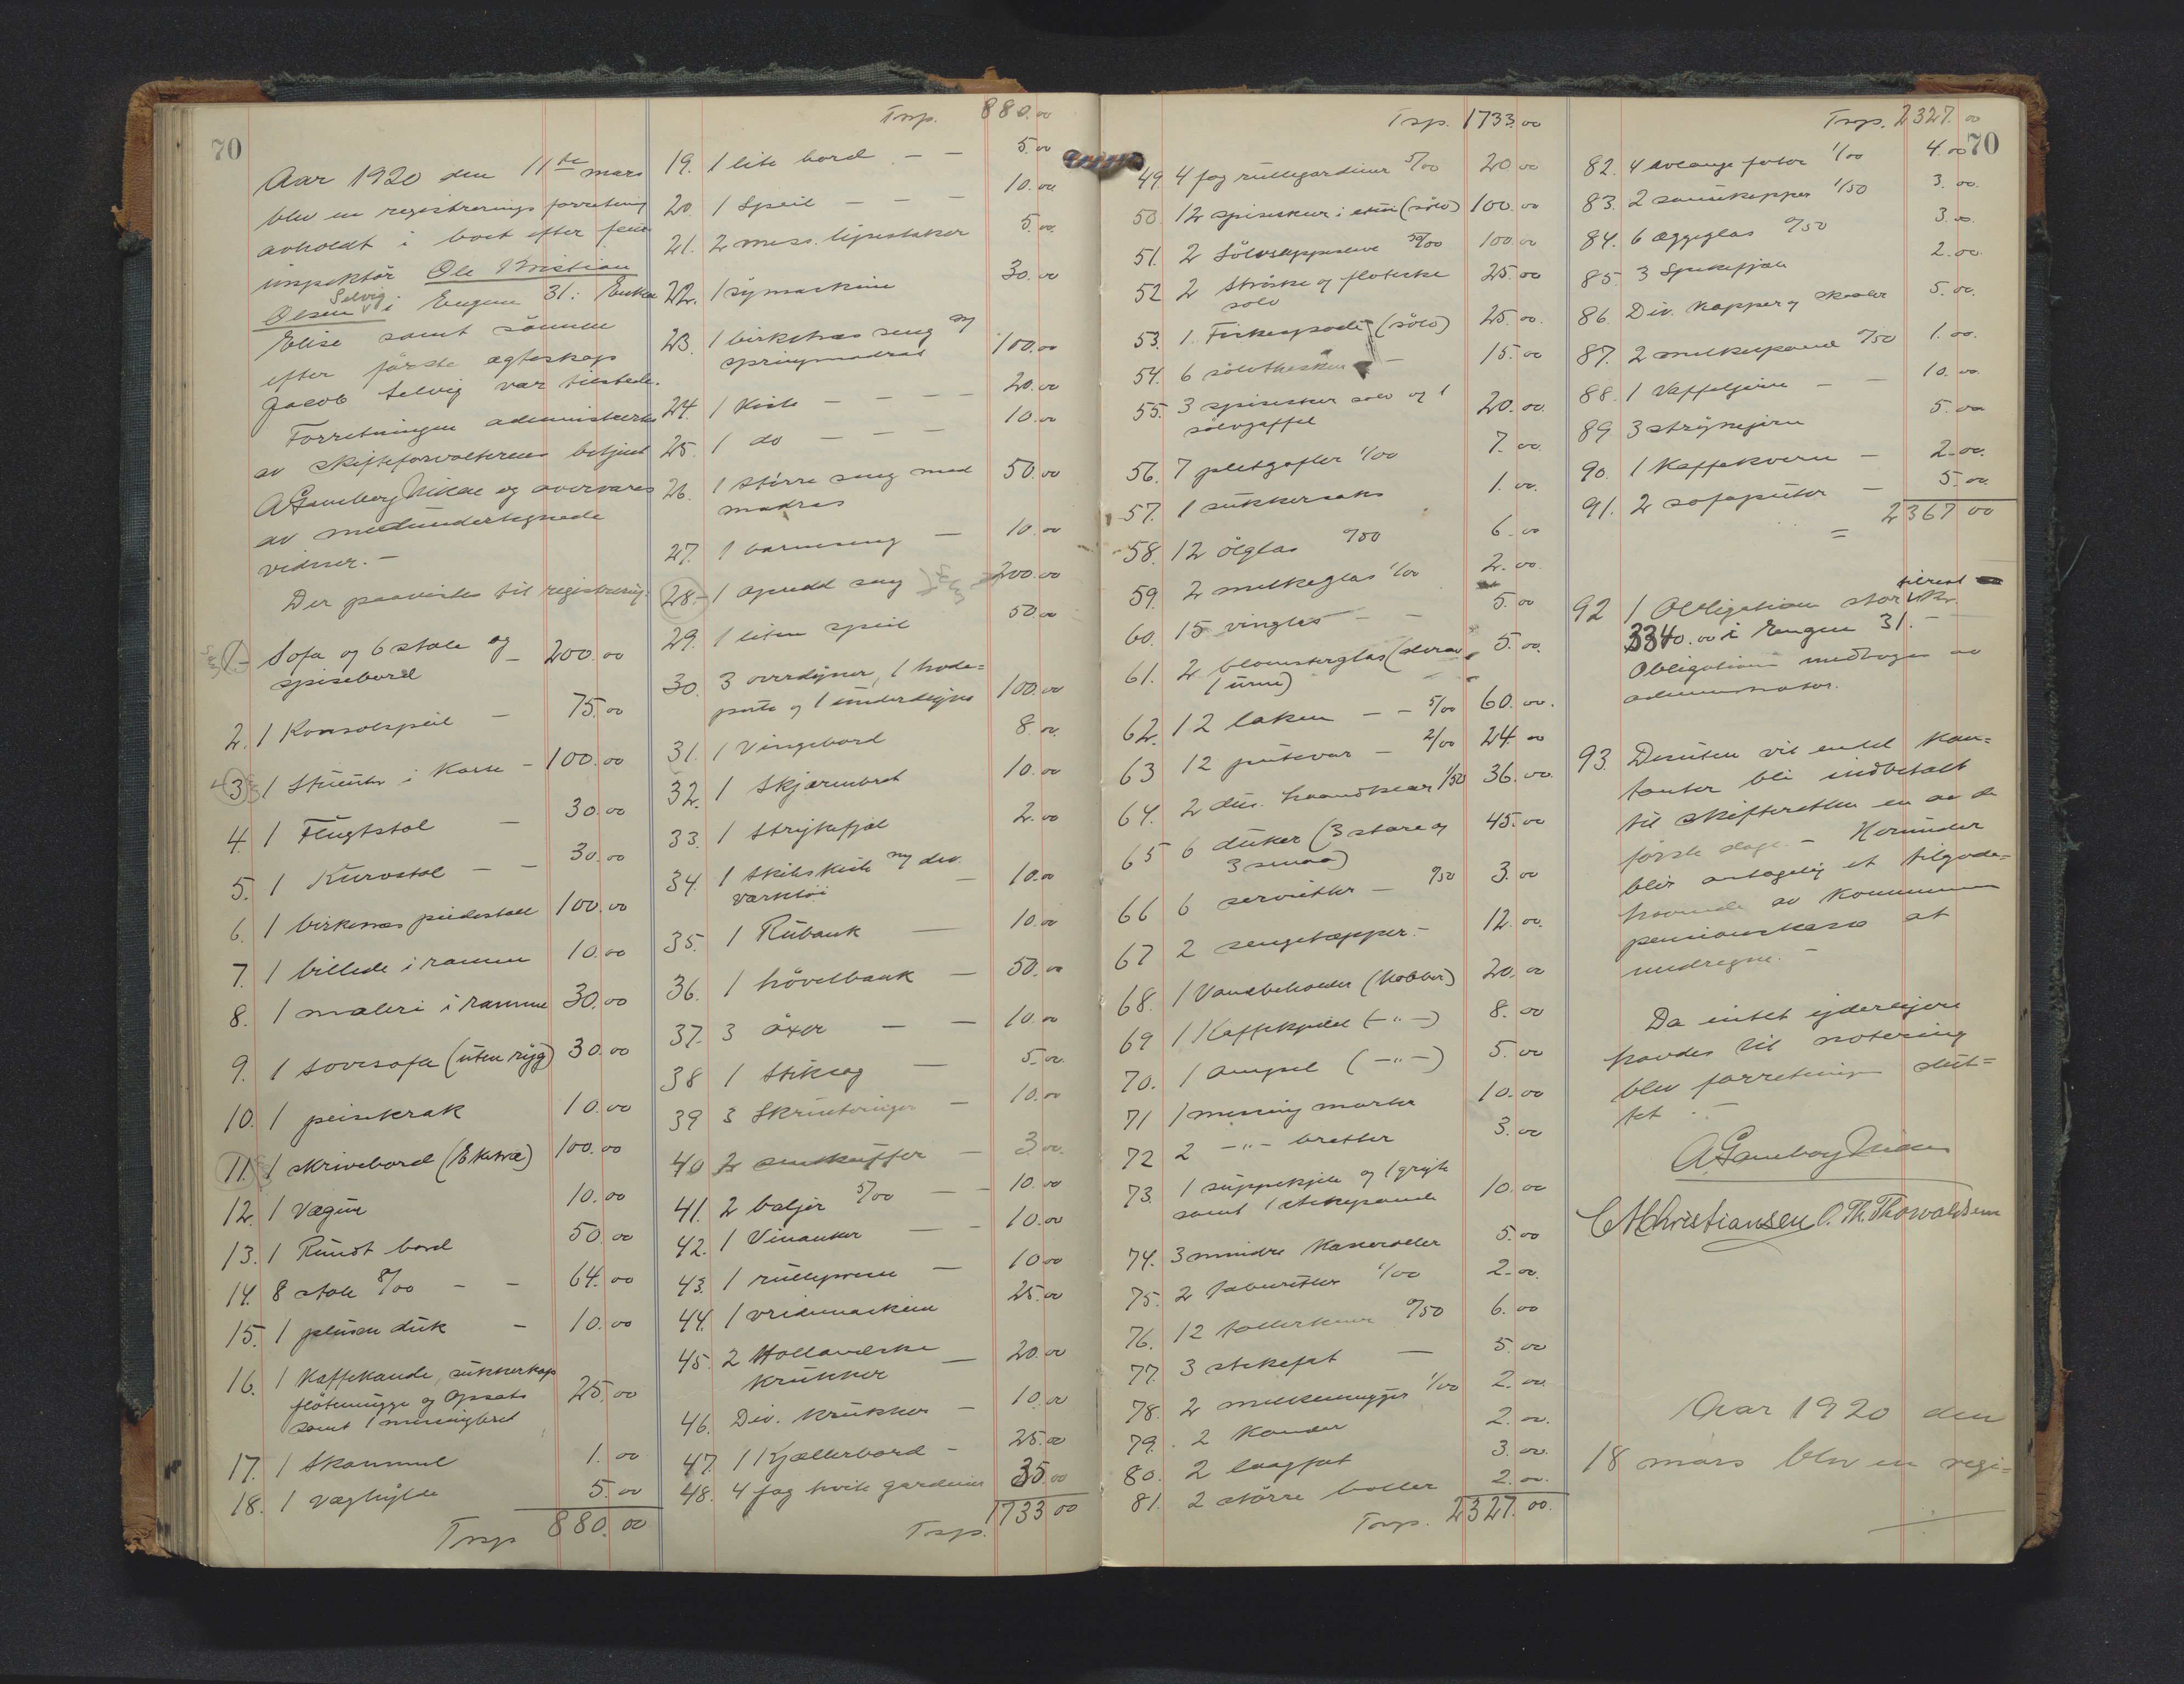 70
Aar 1920 den 11te mars
blev en registrerings forretning
avholdt i boet efter feier
inspektör Ole Kristian
Olsen Selvig i Engene 31: Enken
Elise samt sönnen
efter förste egteskap
Jacob Selvig var tilstede.
Forretningen administrertes
av skifteforvalterens betjent
A Gamborg Nilsen og overvares
av medundertegnede
vidner. -
Der paavistes til registrering:
1. Sofa og 6 stole og
spisebord - 200.00
2. 1 Konsolspeil - 75.00
3. 1 Stueuhr i Kasse - 100.00
4. 1 Flugtstol - 30.00
5. 1 Kurvstol - - 30.00
6. 1 birkenes piedestall 100.00
7. 1 billede i ramme 10.00
8. 1 maleri i ramme 30.00
9. 1 sovesofa (uten ryg) 30.00
10. 1 peisekrak 10.00
11. 1 skrivebord (Ekstra) 100.00
12. 1 Vægur 10.00
13. 1 Rundt bord 50.00
14. 8 stole 8/00 - - 64.00
15. 1 plusen duk - 10.00
16. 1 Kaffekande, sukkerkop
flötemugge og Opsats
samt 1 messingbret 25.00
17. 1 Skammel 1.00
18. 1 Væghylde 5.00
Trsp 880.00
Trsp. 880.00
19. 1 lite bord - - 5.00
20. 1 Speil - - - 10.00
21. 2 mess. lysestaker 5.00
22. 1 symaskine 30.00
23. 1 birketræs seng m/
springmadras 100.00
24. 1 Kiste - - - - 20.00
25. 1 do - - - 10.00
26. 1 större seng med
madras 50.00
27. 1 barneseng - 10.00
28. 1 opredd seng 200.00
29. 1 liten speil 50.00
30. 3 overdyner, 1 hode=
pute og 1 underdyne 100.00
31. 1 Vingebord 8.00
32. 1 Skjærmbret 10.00
33. 1 Strykefjæl 2.00
34. 1 Skibskiste m/ div.
værktöi - 10.00
35. 1 Rubank - 10.00
36. 1 hövelbænk - 50.00
37. 3 öxer - - 10.00
38 1 Stiksag - 5.00
39 3 Skrutvinger - 10.00
40 2 smukuffer - 3.00
41. 2 baljer 5/00 - - 10.00
42. 1 Vinanker - - 10.00
43. 1 rullepresse - 10.00
44. 1 vridemaskine 25.00
45. 2 Hollandske
krukker - 20.00
46. Div. krukker - 10.00
47. 1 Kjællerbord - 25.00
48. 4 fag hvite gardiner 35.00
Trsp. 1733.00
Trsp. 1733.00
49. 4 fag rullegardiner 5/00 20.00
50. 12 spiseskeer i etui (sölv) 100.00
51. 2 Sölvskyppskeer 50/00 100.00
52 2 Ströske og flöteske
solv 25.00
53. 1. Fiskespade (sölv) 25.00
54. 6 sölvtheskeer - 15.00
55. 3 spiseskeer sölv og 1
sölvgaffel 20.00
56. 7 pletgafler 1/00 7.00
57. 1 sukkersaks 1.00
58. 12 ölglas 0/50 6.00
59. 2 melkeglas 1/00 2.00
60. 15 vinglas - - 5.00
61. 2 blomsterglas (derav
1 urne) 5.00
62. 12 laken - - 5/00 60.00.
63 12 putevar - 2/00 24.00
64. 2 dus. haandklær 1/50 36.00
65 6 duker (3 store og
3 smaa) 45.00
66 6 servietter - 0/50 3.00
67 2 sengetæpper - 12.00.
68. 1 Vandbeholder (kobber) 20.00
69 1 Kaffekjedel (-"-) 8.00
70. 1 ampel (-"-) 5.00
71 1 messing morter 10.00
72 2 -"- bretter 3.00
73. 1 suppekjele og 1 gryte
samt 1 stekepande 10.00
74. 3 mindre Kasseroller 5.00
75. 2 taburetter 1/00 2.00.
76. 12 tallerkener 0/50 6.00
77. 3 stekefat - 5.00
78. 2 melkemugger 1/00 2.00
79. 2 Kander 2.00.
80. 2 laagfat 3.00.
81. 2 större boller 2.00.
Trsp. 2327.00.
Trsp. 2327.00
70
82. 4 avlange fater 1/00 4.00
83. 2 sausekopper 1/50 3.00.
84. 6 æggeglas 0/50 3.00
85. 3 Spekefjæle 2.00.
86. Div. Kopper og skaaler 5.00.
87. 2 melkespand 0/50 1.00.
88. 1 Vaffeljern - - 10.00.
89 3 strykejern 5.00
90. 1 Kaffekvern - 2.00.
91. 2 sofaputer - 5.00.
= 2367 00
92 1 Obligation stor tilrest Kr.
3340.00 i Engene 31. -
Obligationen medtoges av
administrator.
93. Desuten vil endel kon=
tanter bli indbetalt
til skifteretten en av de
förste dage. - Herunder
blir antagelig et tilgode=
havende av Kommunens
pensionskasse at
medregne. -
Da intet yderligere
havdes til notering
blev forretningen slut=
tet. -
A. Gamborg Nilsen
C A Christiansen O. Th. Thorvaldsen
Aar 1920 den
18 mars blev en regi=